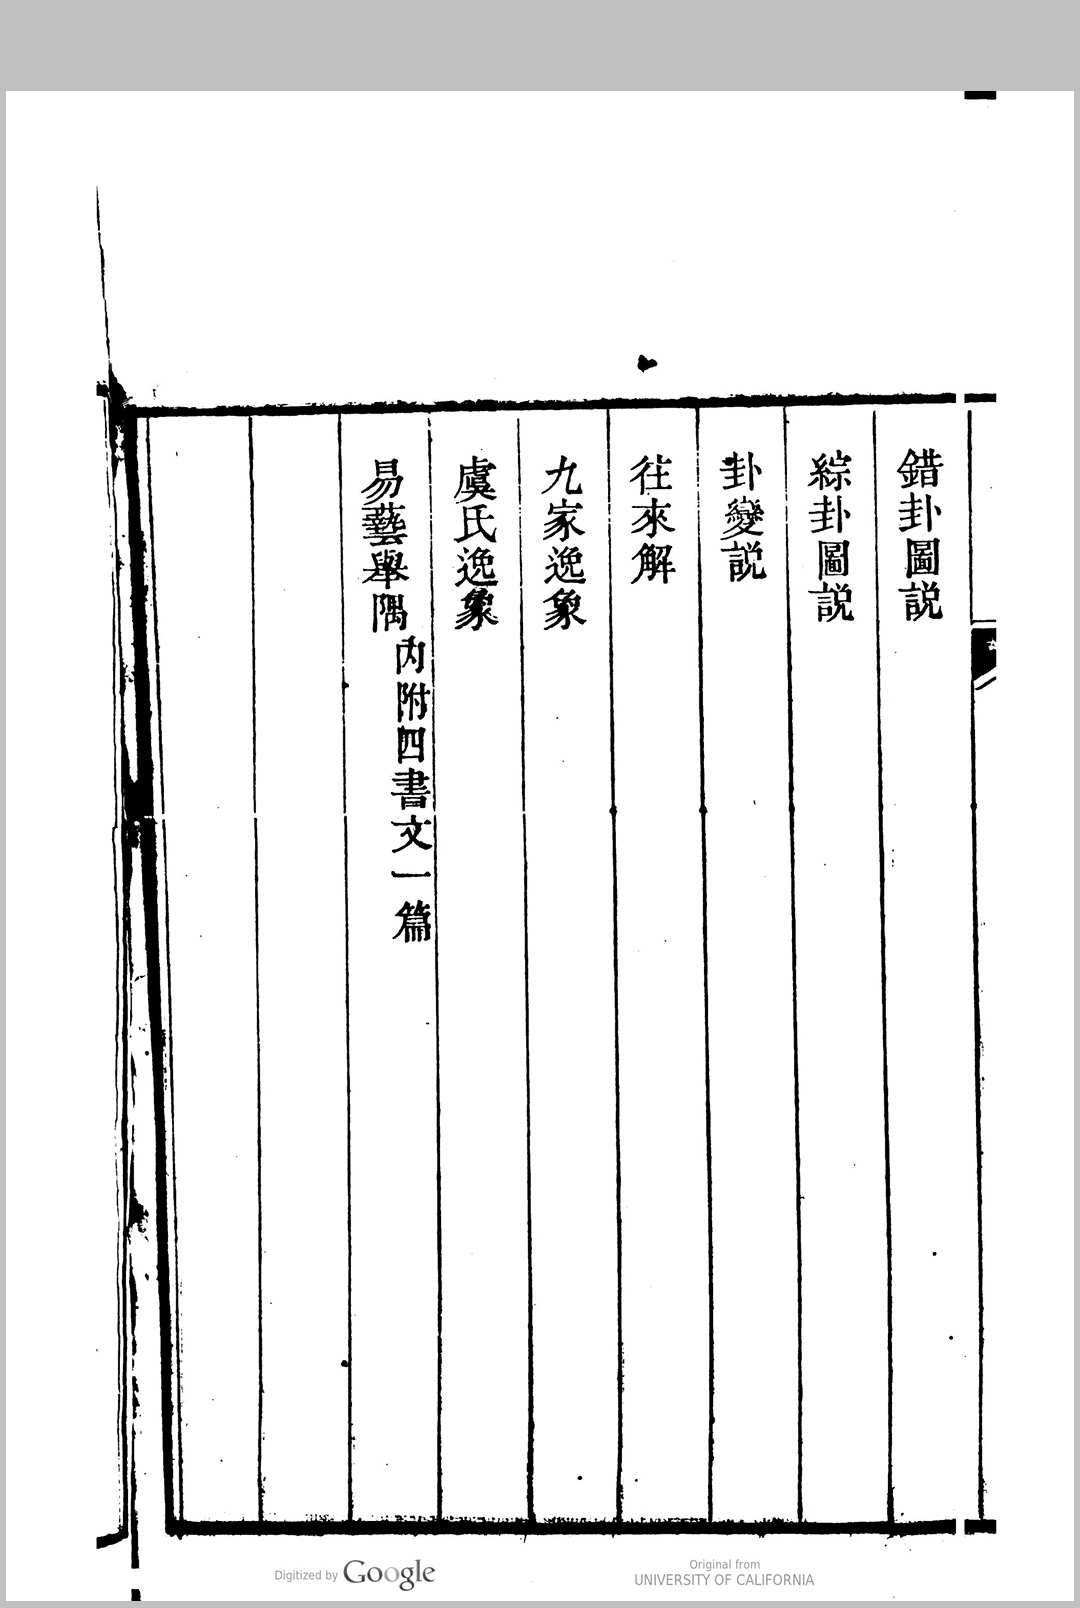 錯卦圖說
綜卦圖說
卦變說
往來解
九家逸象
虞氏逸象
易藝舉隅內附四書文一篇
Digitized by Google
Original from
UNIVERSITY OF CALIFORNIA